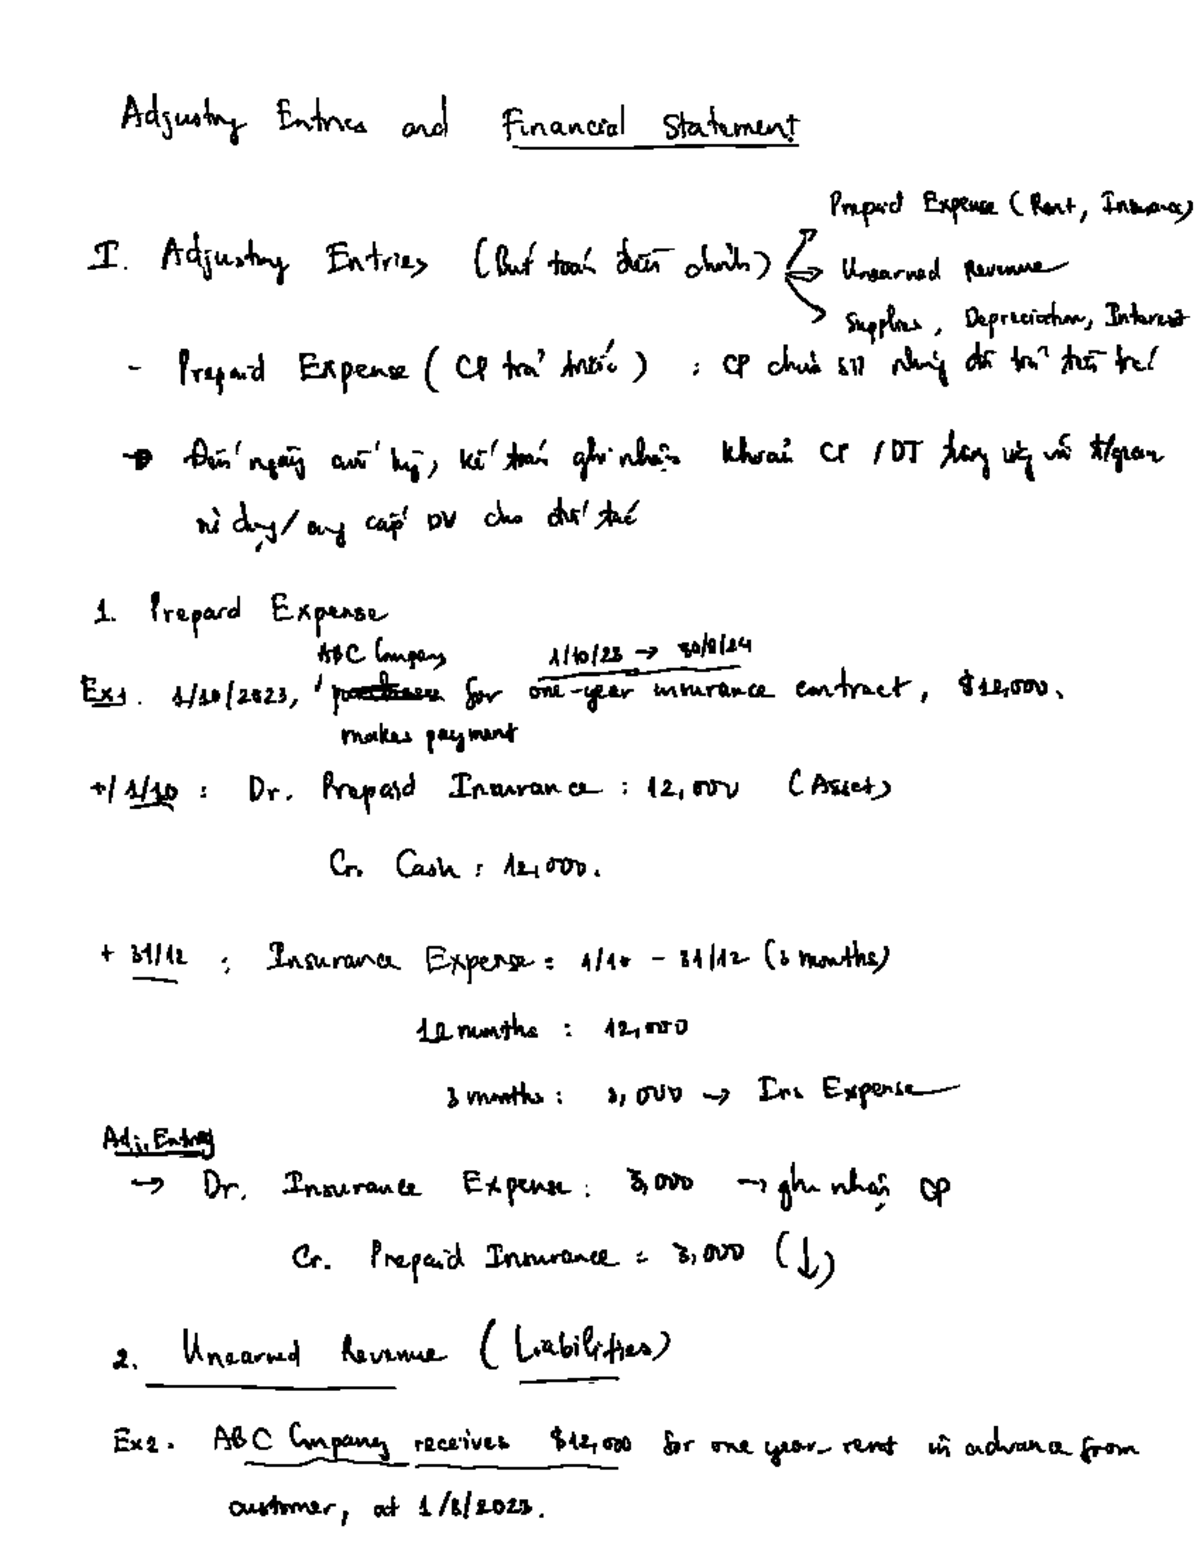 Adjusting Entries and Financial Statement
Prepaid Expense (Rent, Insurance)
I. Adjusting Entries (Bút toán điều chỉnh)
Unearned Revenue
Supplies, Depreciation, Interest
- Prepaid Expense (CP trả trước) : CP chưa sd nhưng đã trả trước
→ Đến ngày cuối kỳ, kế toán ghi nhận khoản CP / DT tương ứng với t/gian
sử dụng / cung cấp DV cho đối tác
1. Prepaid Expense
ABC Company
1/10/23 → 30/9/24
Ex1. 1/10/2023, purchases for one-year insurance contract, $12,000.
makes payment
+/ 1/10 : Dr. Prepaid Insurance : 12,000 (Asset)
Cr. Cash : 12,000.
+ 31/12 : Insurance Expense : 1/10 - 31/12 (3 months)
12 months : 12,000
3 months : 3,000 → Ins Expense
Adj. Entry
→ Dr. Insurance Expense : 3,000 → ghi nhận CP
Cr. Prepaid Insurance = 3,000 (↓)
2. Unearned Revenue (Liabilities)
Ex2. ABC Company receives $12,000 for one year rent in advance from
customer, at 1/8/2023.